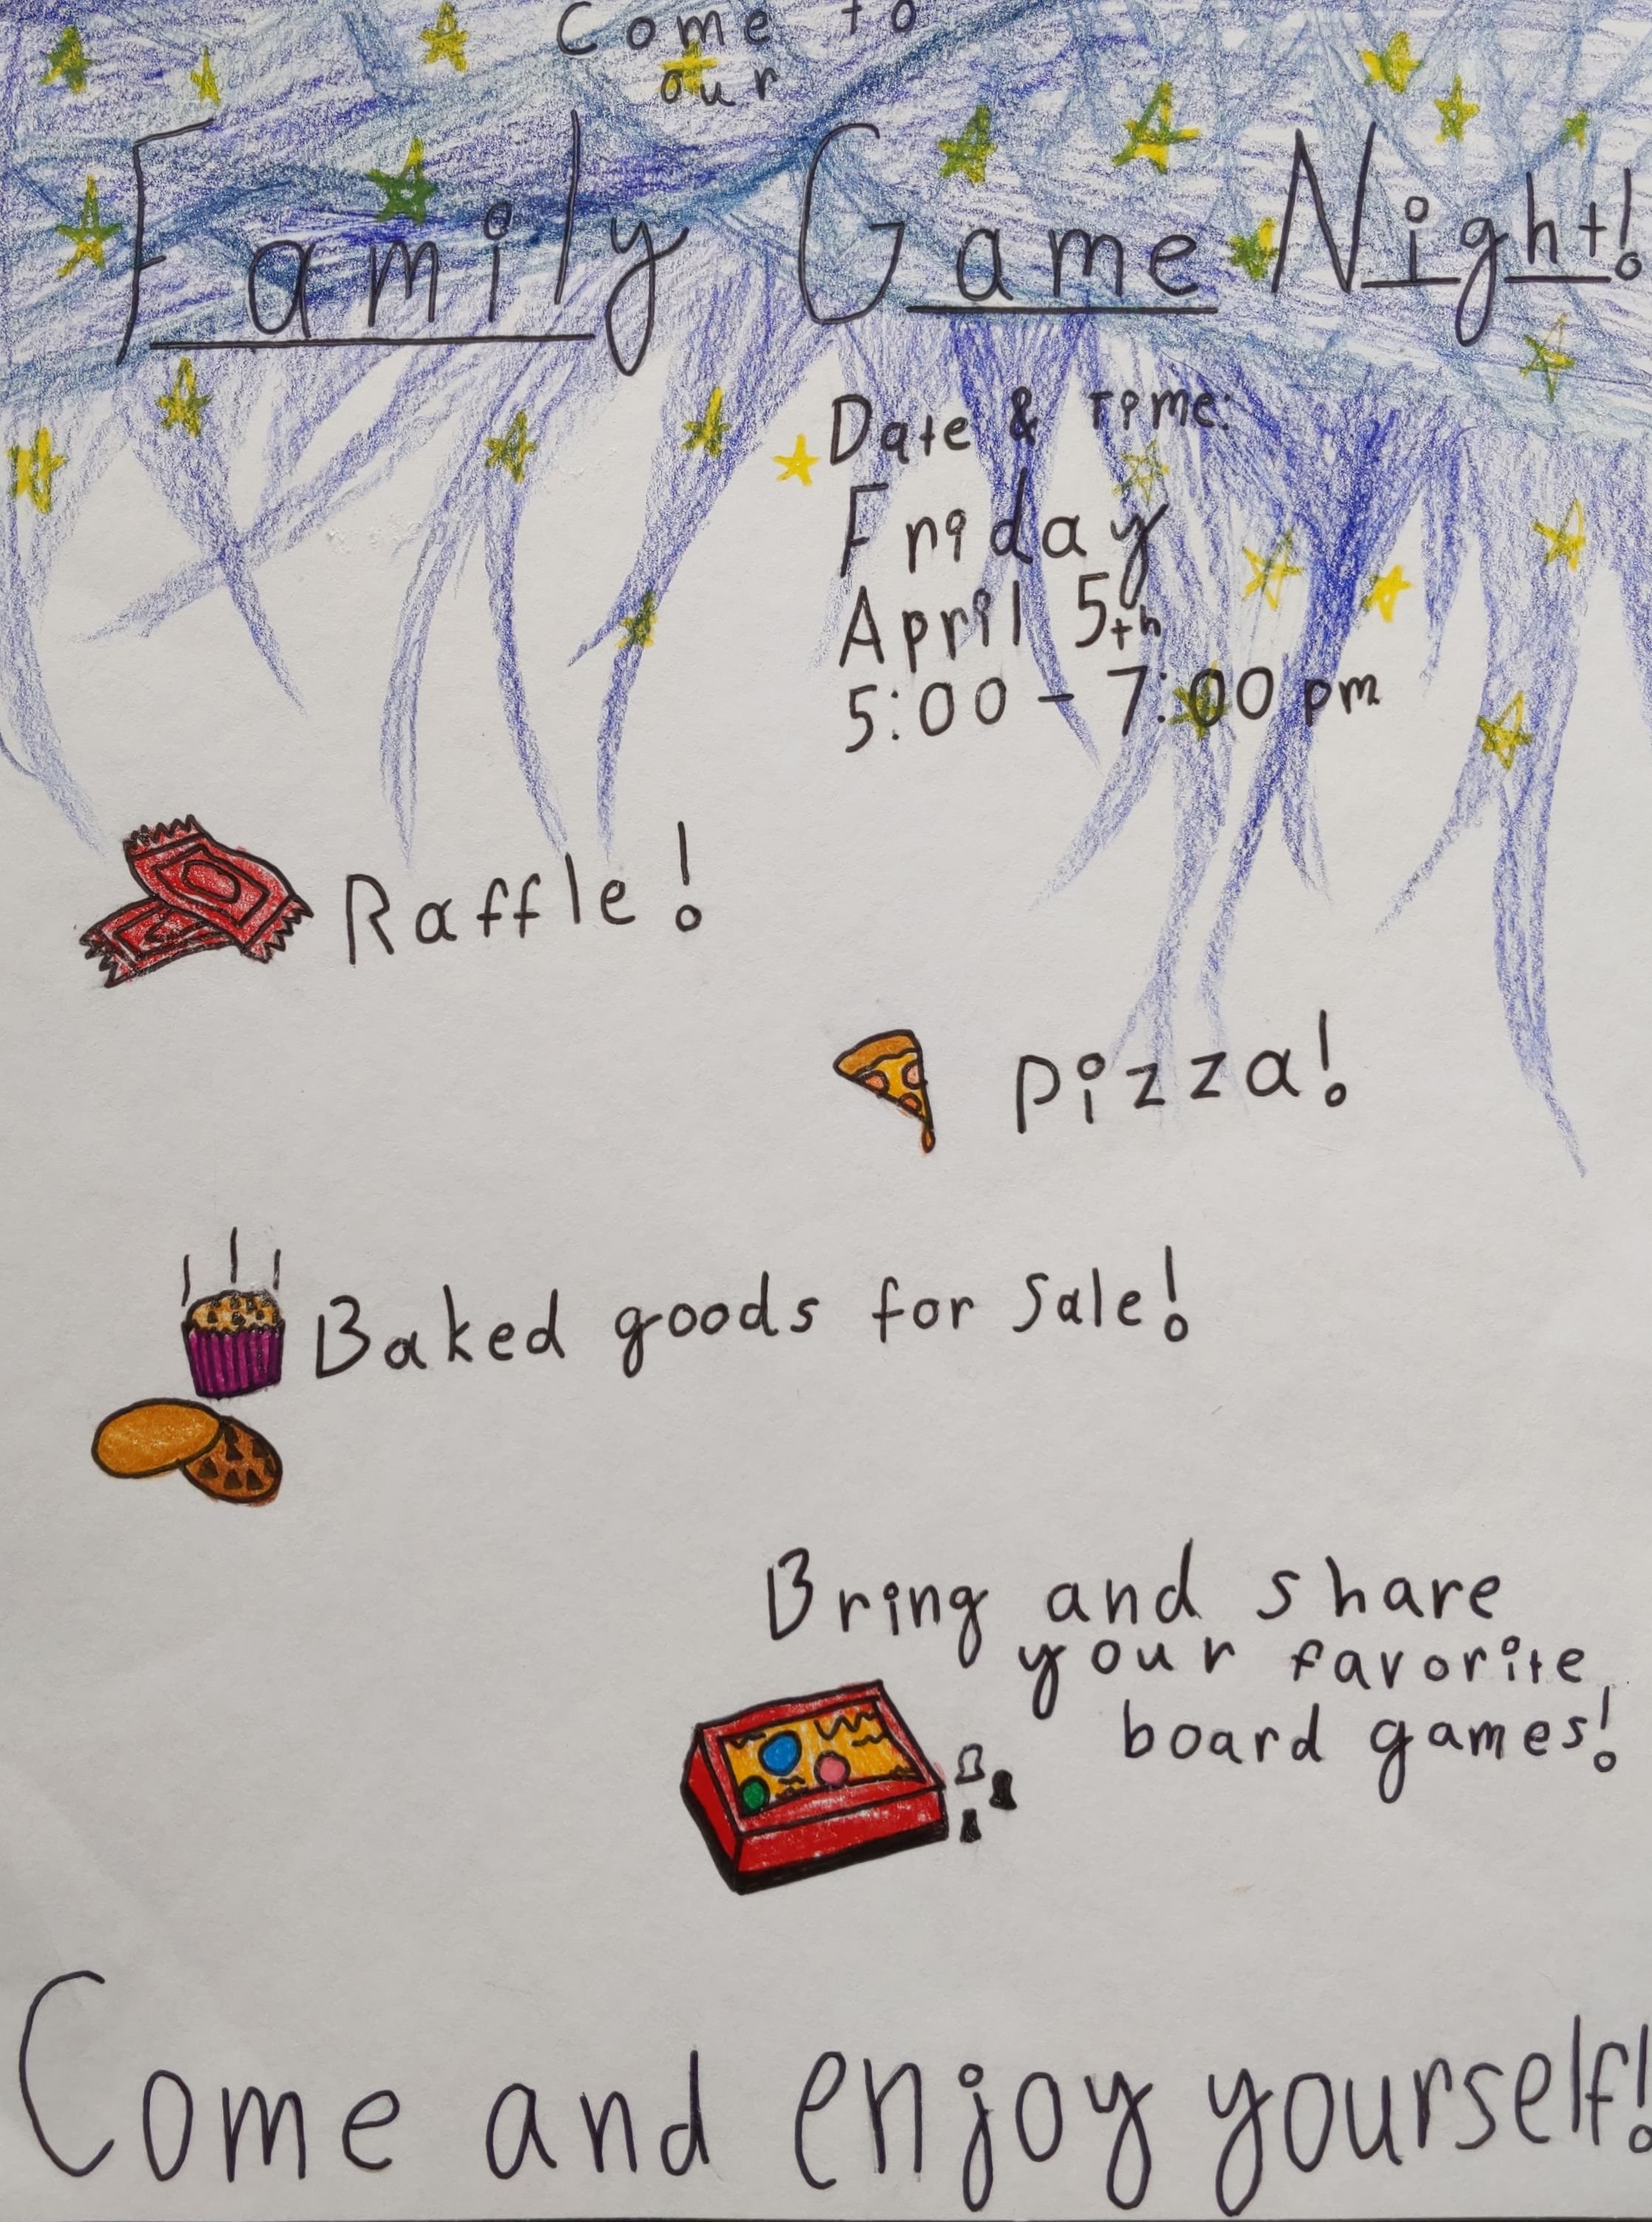 Come to
our
Family Game Night!
Date & Time:
Friday
April 5th
5:00 - 7:00 pm
Raffle!
Pizza!
Baked goods for sale!
Bring and share
your favorite
board games!
Come and enjoy yourself!